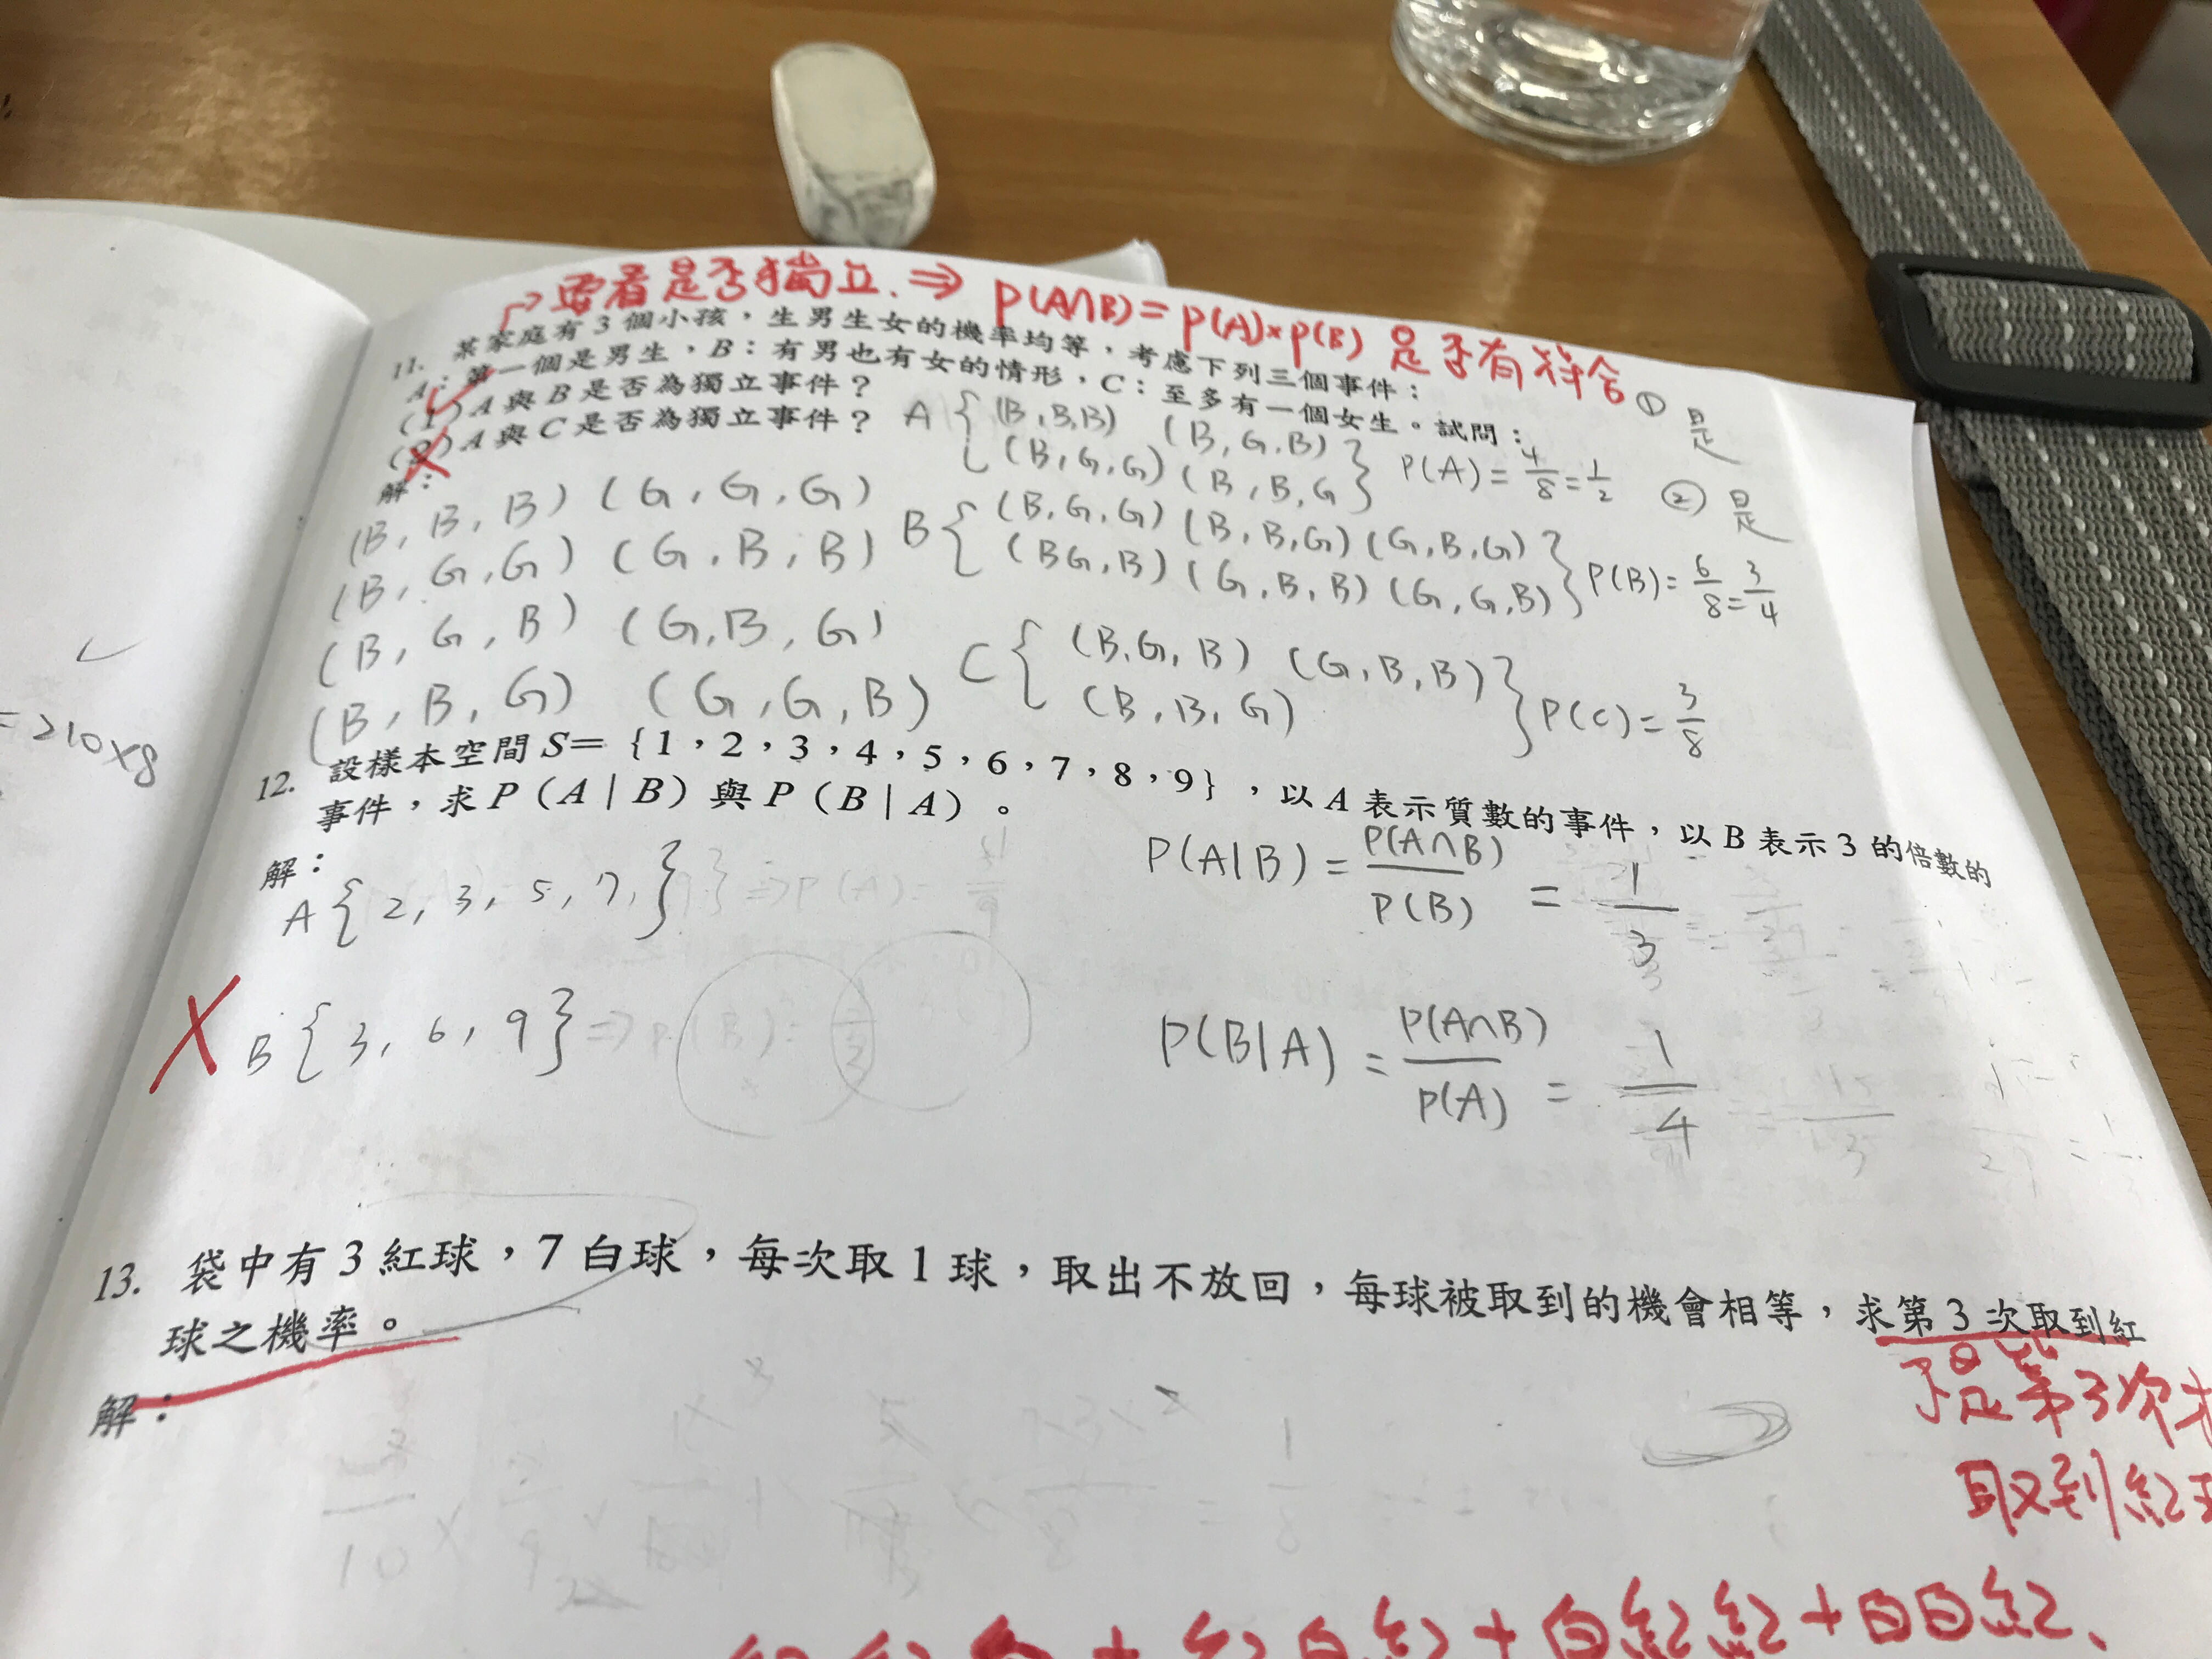 要看是否獨立. ⇒ P(A∩B) = P(A)×P(B) 是否有符合
11. 某家庭有 3 個小孩，生男生女的機率均等，考慮下列三個事件：
A：第一個是男生，B：有男也有女的情形，C：至多有一個女生。試問：
(1) A 與 B 是否為獨立事件？
(2) A 與 C 是否為獨立事件？
① 是
② 是
解：
(B, B, B) (G, G, G)
(B, G, G) (G, B, B)
(B, G, B) (G, B, G)
(B, B, G) (G, G, B)
A { (B, B, B) (B, G, B)
(B, G, G) (B, B, G } P(A) = 4/8 = 1/2
B { (B, G, G) (B, B, G) (G, B, G)
(BG, B) (G, B, B) (G, G, B) } P(B) = 6/8 = 3/4
C { (B, G, B) (G, B, B)
(B, B, G) } P(C) = 3/8
= 210×8
12. 設樣本空間 S＝｛1，2，3，4，5，6，7，8，9｝，以 A 表示質數的事件，以 B 表示 3 的倍數的
事件，求 P（A｜B）與 P（B｜A）。
解：
A { 2, 3, 5, 7, }
P(A|B) = P(A∩B)/P(B) = 1/3
B { 3, 6, 9 }
P(B|A) = P(A∩B)/P(A) = 1/4
13. 袋中有 3 紅球，7 白球，每次取 1 球，取出不放回，每球被取到的機會相等，求第 3 次取到紅
球之機率。
解：
不是第3次才
取到紅球
+ 紅白紅 + 白紅紅 + 白白紅、